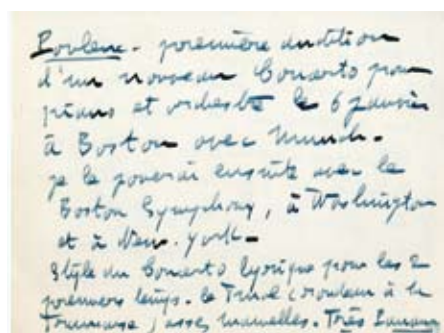 Poulenc - première audition
d'un nouveau Concerto pour
piano et orchestre le 6 janvier
à Boston avec Munch.
je le jouerai ensuite avec le
Boston Symphony, à Washington
et à New-York.
Style du Concerto lyrique pour les 2
premiers temps. le Final (rondeau à la
française) assez Très